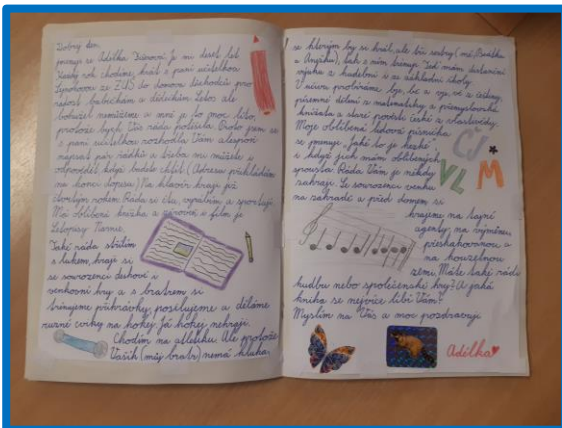 Dobrý den,
jmenuji se Adélka. Je mi deset let.
Každý rok chodíme hrát s paní učitelkou
ze ZUŠ do domova důchodců pro
radost babičkám a dědečkům. Letos ale
bohužel nemůžeme a mně je to moc líto,
protože bych Vás ráda potěšila. Proto jsem se
s paní učitelkou rozhodla Vám alespoň
napsat pár řádků a třeba mi můžete i
odpovědět, když budete chtít. (Adresu přikládám
na konci dopisu.) Na klavír hraji již
čtvrtým rokem. Ráda si čtu, vyrábím a sportuji.
Má oblíbená knížka a zároveň i film je
Letopisy Narnie.
Také ráda střílím
s lukem, hraji si
se sourozenci deskové i
venkovní hry a s bratrem si
trénujeme přihrávky, posilujeme a děláme
různé cviky na hokej. Já hokej nehraji.
Chodím na atletiku. Ale protože
Vašík (můj bratr) nemá kluka,
se kterým by si hrál, ale tři sestry (mě,
Anežku), tak s ním trénuji. Teď mám distanční
výuku z hudební i ze základní školy.
V učivu probíráme bje, bě a vje, vě z češtiny,
písemné dělení z matematiky a přemyslovská
knížata a staré pověsti české z vlastivědy.
Moje oblíbená lidová písnička
se jmenuje „Jaké to je hezké",
i když jich mám oblíbených
spousta. Ráda Vám je někdy
zahraji. Se sourozenci venku
na zahradě a před domem si
ČJ
VL
M
hrajeme na tajné
agenty, na výměnu,
přeskakovanou a
na kouzelnou
zemi. Máte také rádi
hudbu nebo společenské hry? A jaká
kniha se nejvíce líbí Vám?
Myslím na Vás a moc pozdravuji
Adélka